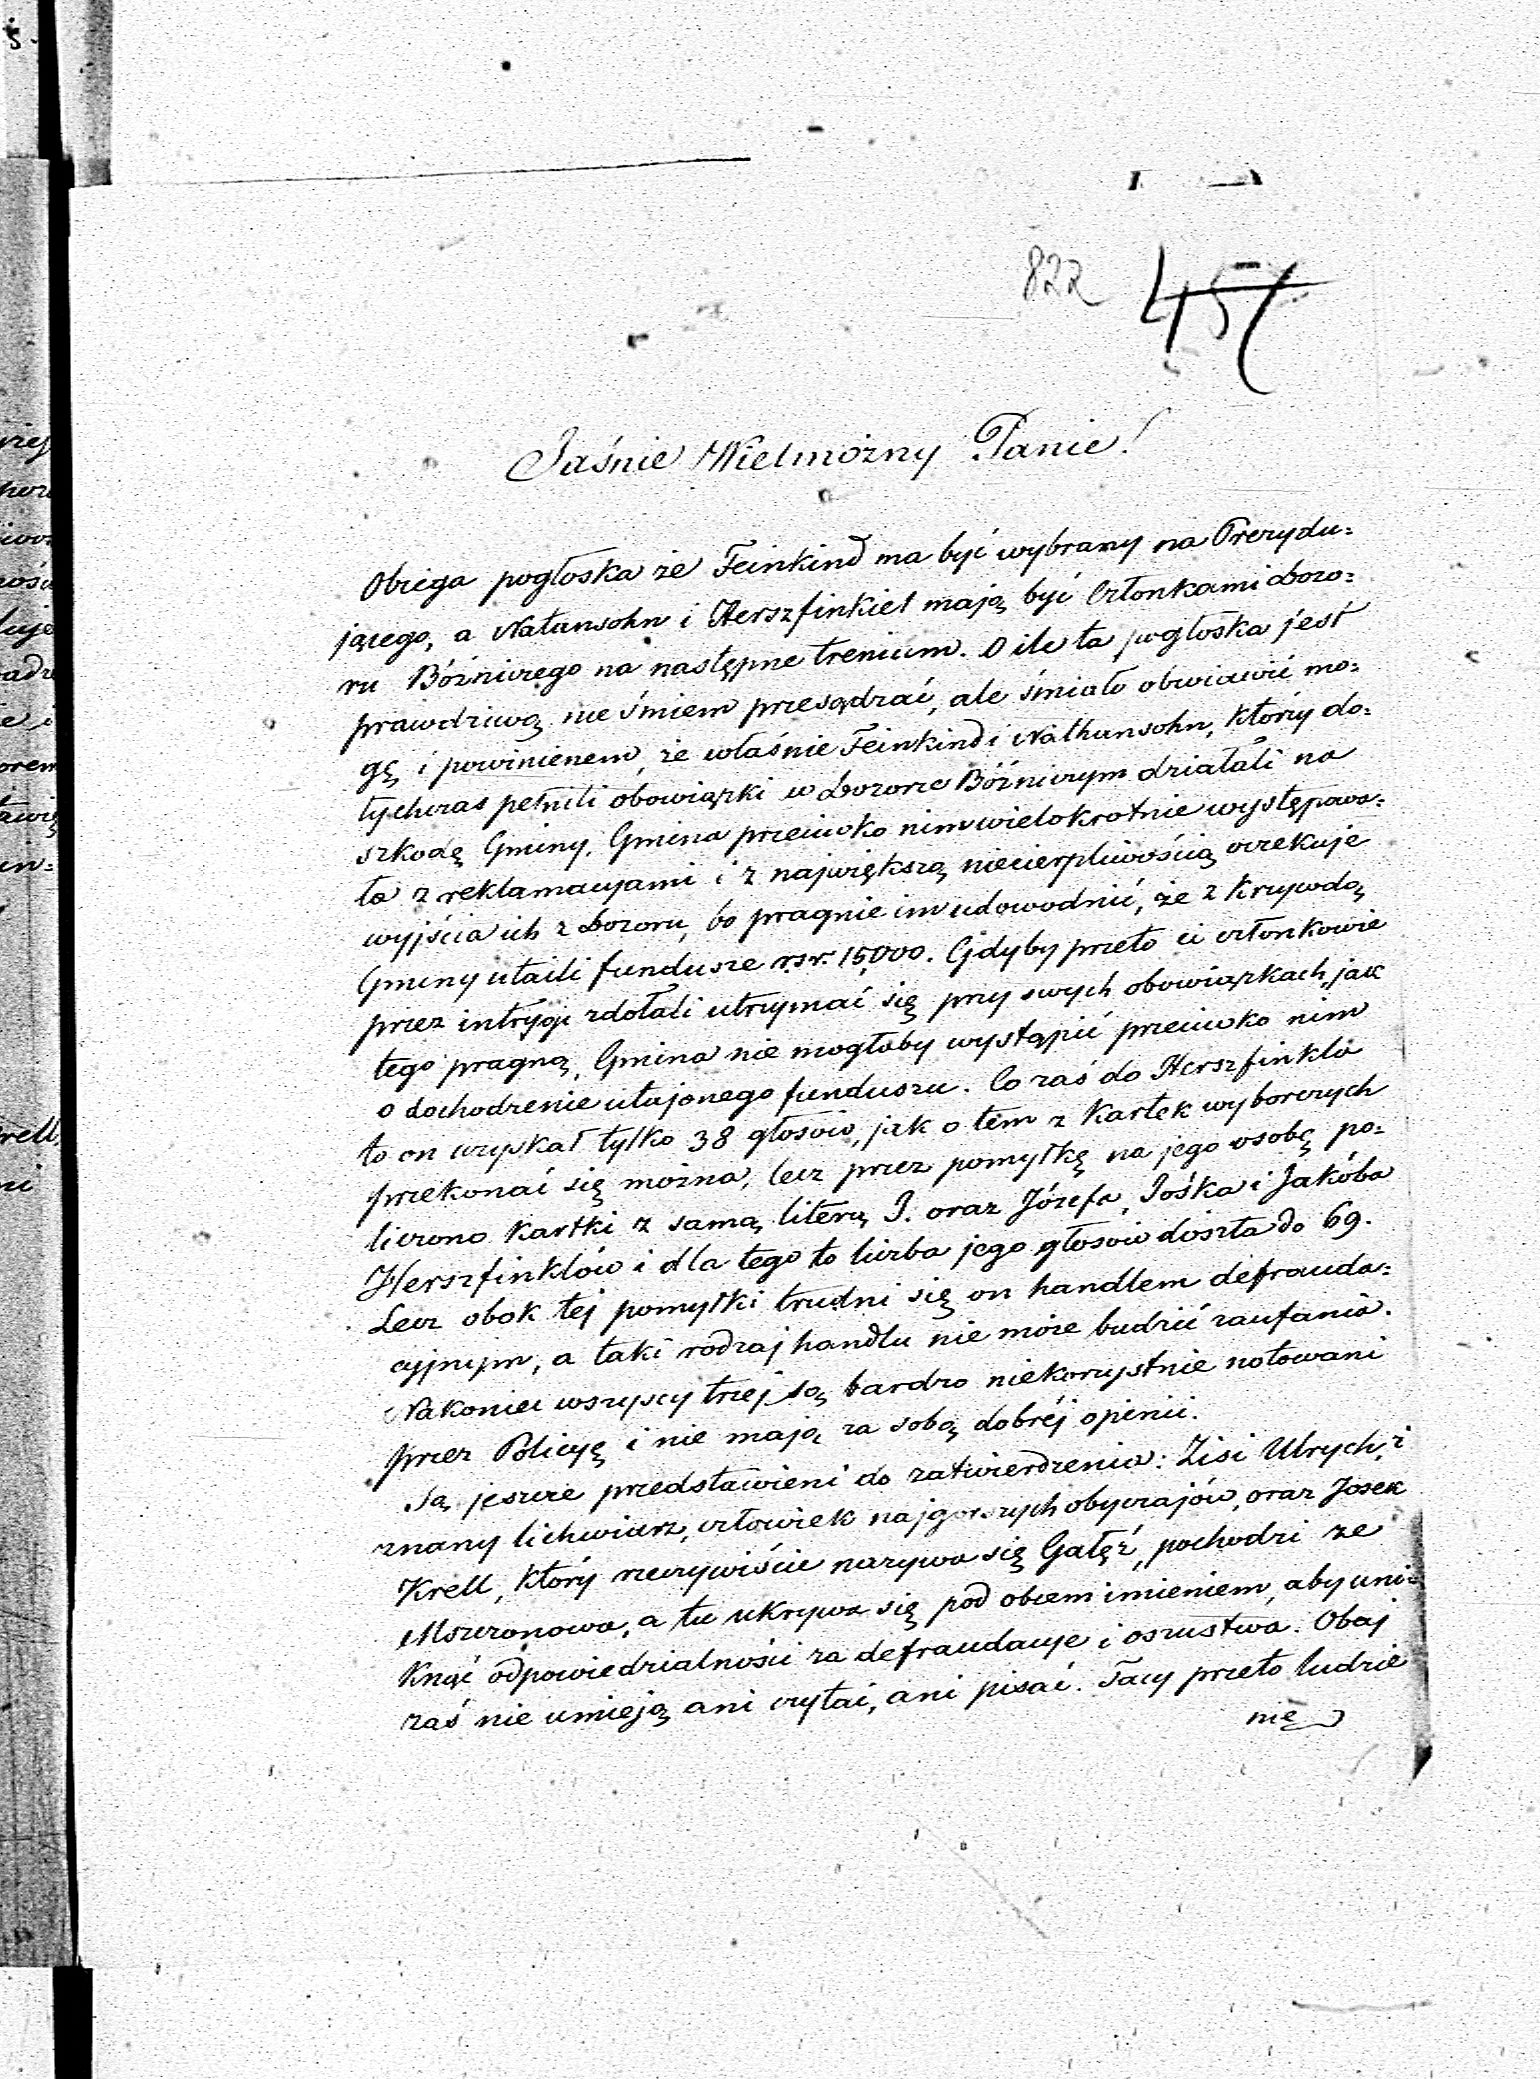 822 457
Jaśnie Wielmożny Panie!
Obiega pogłoska że Feinkind ma być wybrany na Prezydu=
jącego, a Natansohn i Herszfinkiel mają być Członkami Dozo=
ru Bóźniczego na następne trenium. O ile ta pogłoska jest
prawdziwą nie śmiem przesądzać, ale śmiało obwiawić mo=
gę i powinienem, że właśnie Feinkind i Nathansohn, którzy do=
tychczas pełnili obowiązki w Dozorze Bóźniczym działali na
szkodę Gminy. Gmina przeciwko nim wielokrotnie występowa=
ła z reklamacyami i z największą niecierpliwością oczekuje
wyjścia ich z Dozoru, bo pragnie im udowodnić, że z krzywdą
Gminy utaili fundusze rsr. 15,000. Gdyby przeto ci członkowie
przez intrygi zdołali utrzymać się przy swych obowiązkach, jak
tego pragną, Gmina nie mogłaby wystąpić przeciwko nim
o dochodzenie utajonego funduszu. Co zaś do Herszfinkla
to on uzyskał tylko 38 głosów, jak o tem z kartek wyborczych
przekonać się można, lecz przez pomyłkę na jego osobę po=
liczono kartki z samą literą J. oraz Józefa, Jośka i Jakóba
Herszfinklów i dla tego to liczba jego głosów doszła do 69.
Lecz obok tej pomyłki trudni się on handlem defrauda=
cyjnym, a taki rodzaj handlu nie może budzić zaufania.
Nakoniec wszyscy trzej są bardzo niekorzystnie notowani
przez Policyę i nie mają za sobą dobréj opinii.
Są jeszcze przedstawieni do zatwierdzenia: Zisi Ulrych, i
znany lichwiarz, człowiek najgorszych obyczajów, oraz Josek
Krell, który rzeczywiście nazywa się Gałęź, pochodzi ze
Mszczonowa, a tu ukrywa się pod obcem imieniem, aby uni=
knąć odpowiedzialności za defraudacye i oszustwa. Obaj
zaś nie umieją ani czytać, ani pisać. Tacy przeto ludzie
nie